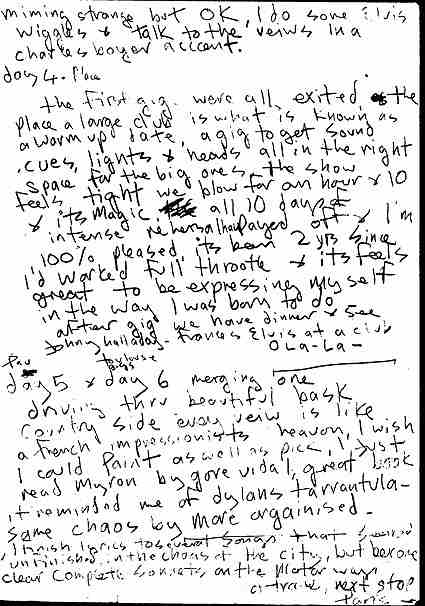 miming strange but OK, I do some Elvis
wiggles & talk to the veiws in a
charles boyer accent.
day 4. Place
the first gig. were all exited, the
place a large club is what is known as
a warm up date, a gig to get sound
cues, lights & heads all in the right
space for the big ones, the show
feels right we blow for an hour & 10
& its magic. all 10 days of
intense rehersal has payed off & I'm
100% pleased, its been 2 yrs since
I'd worked full throotle & its feels
great to be expressing myself
in the way I was born to do
after gig we have dinner & see
Johnny halladay - Frances Elvis at a club
OLa-La-
Pau
day 5 & day 6 merging one
driving thru beautiful bask
country side evry veiw is like
a french impressionists heavon, I wish
I could paint as well as pick, I just
read Myron by gore vidal, great book
it reminded me of dylans tarrantula-
same chaos by more orgainised -
I finish lyrics to several songs that seemed
unfinished in the chaos of the city, but become
clear complete sonnets on the motor way
next stop
Paris